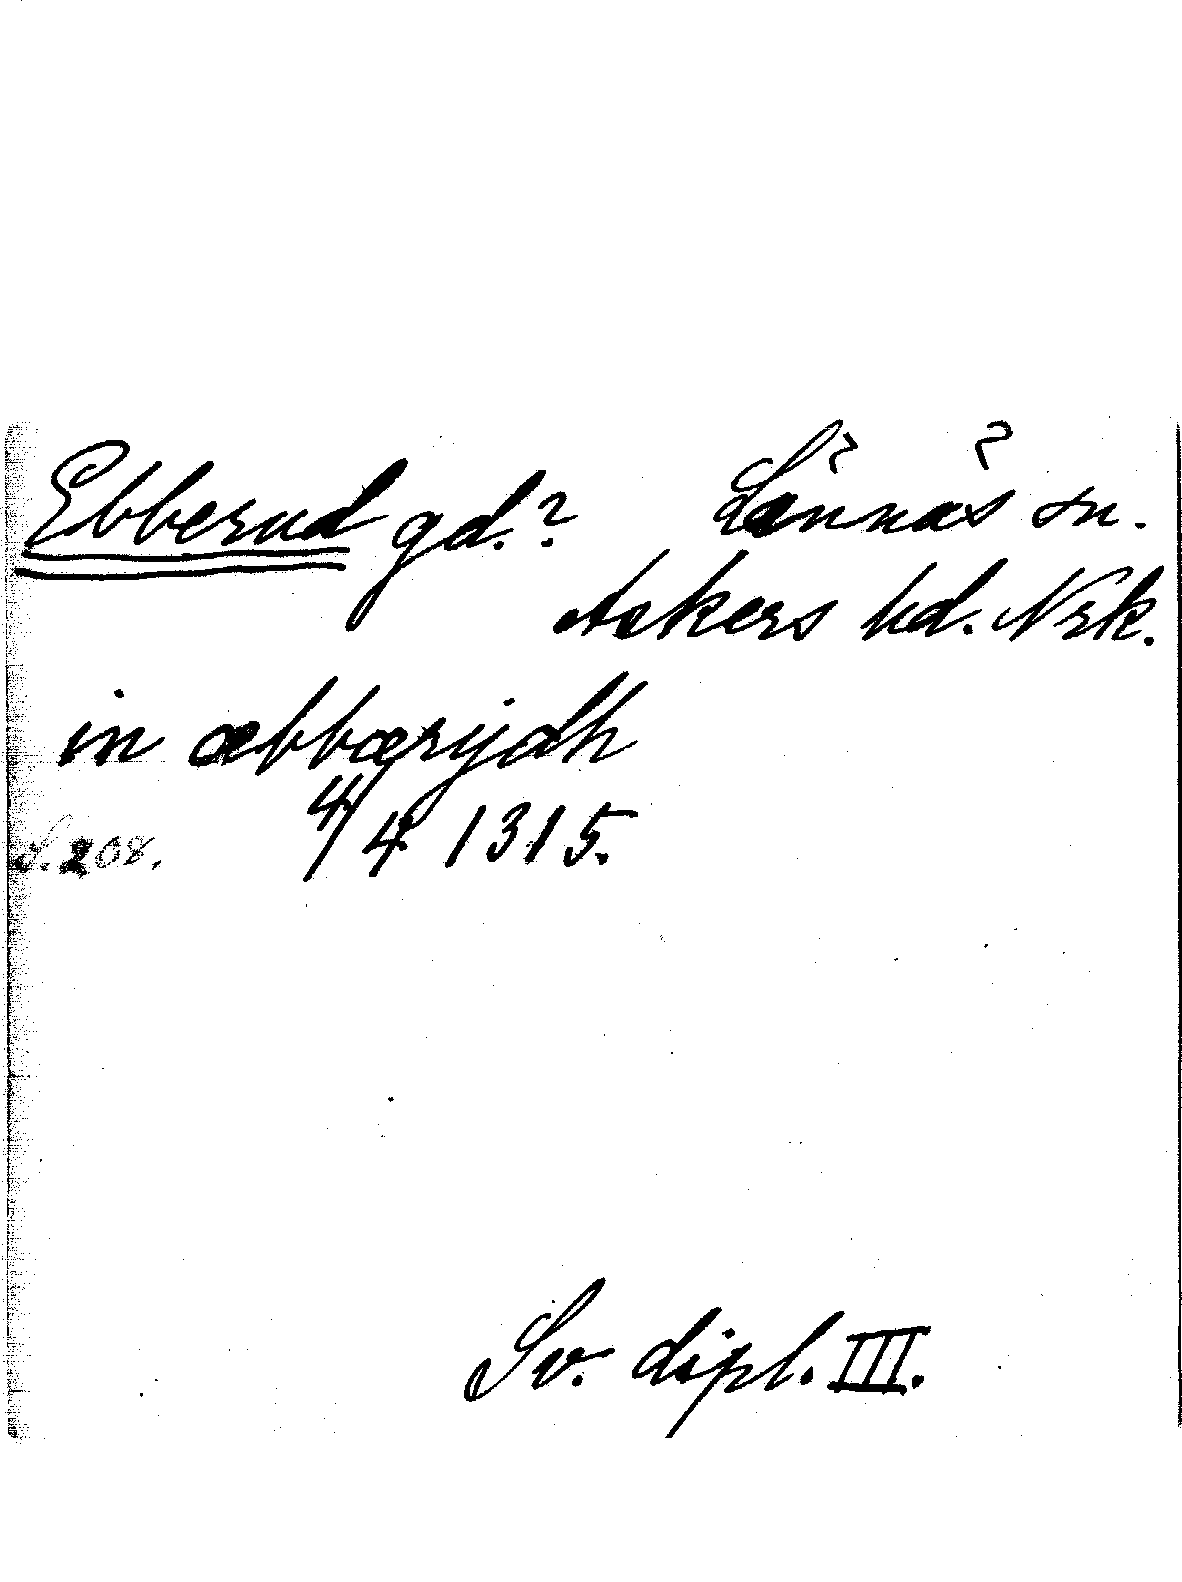 Ebberud gd.? Lännäs sn.
Askers hd. Nrk.
in æbbærydh
4/4 1315.
S. 208.
Sv. dipl. III.